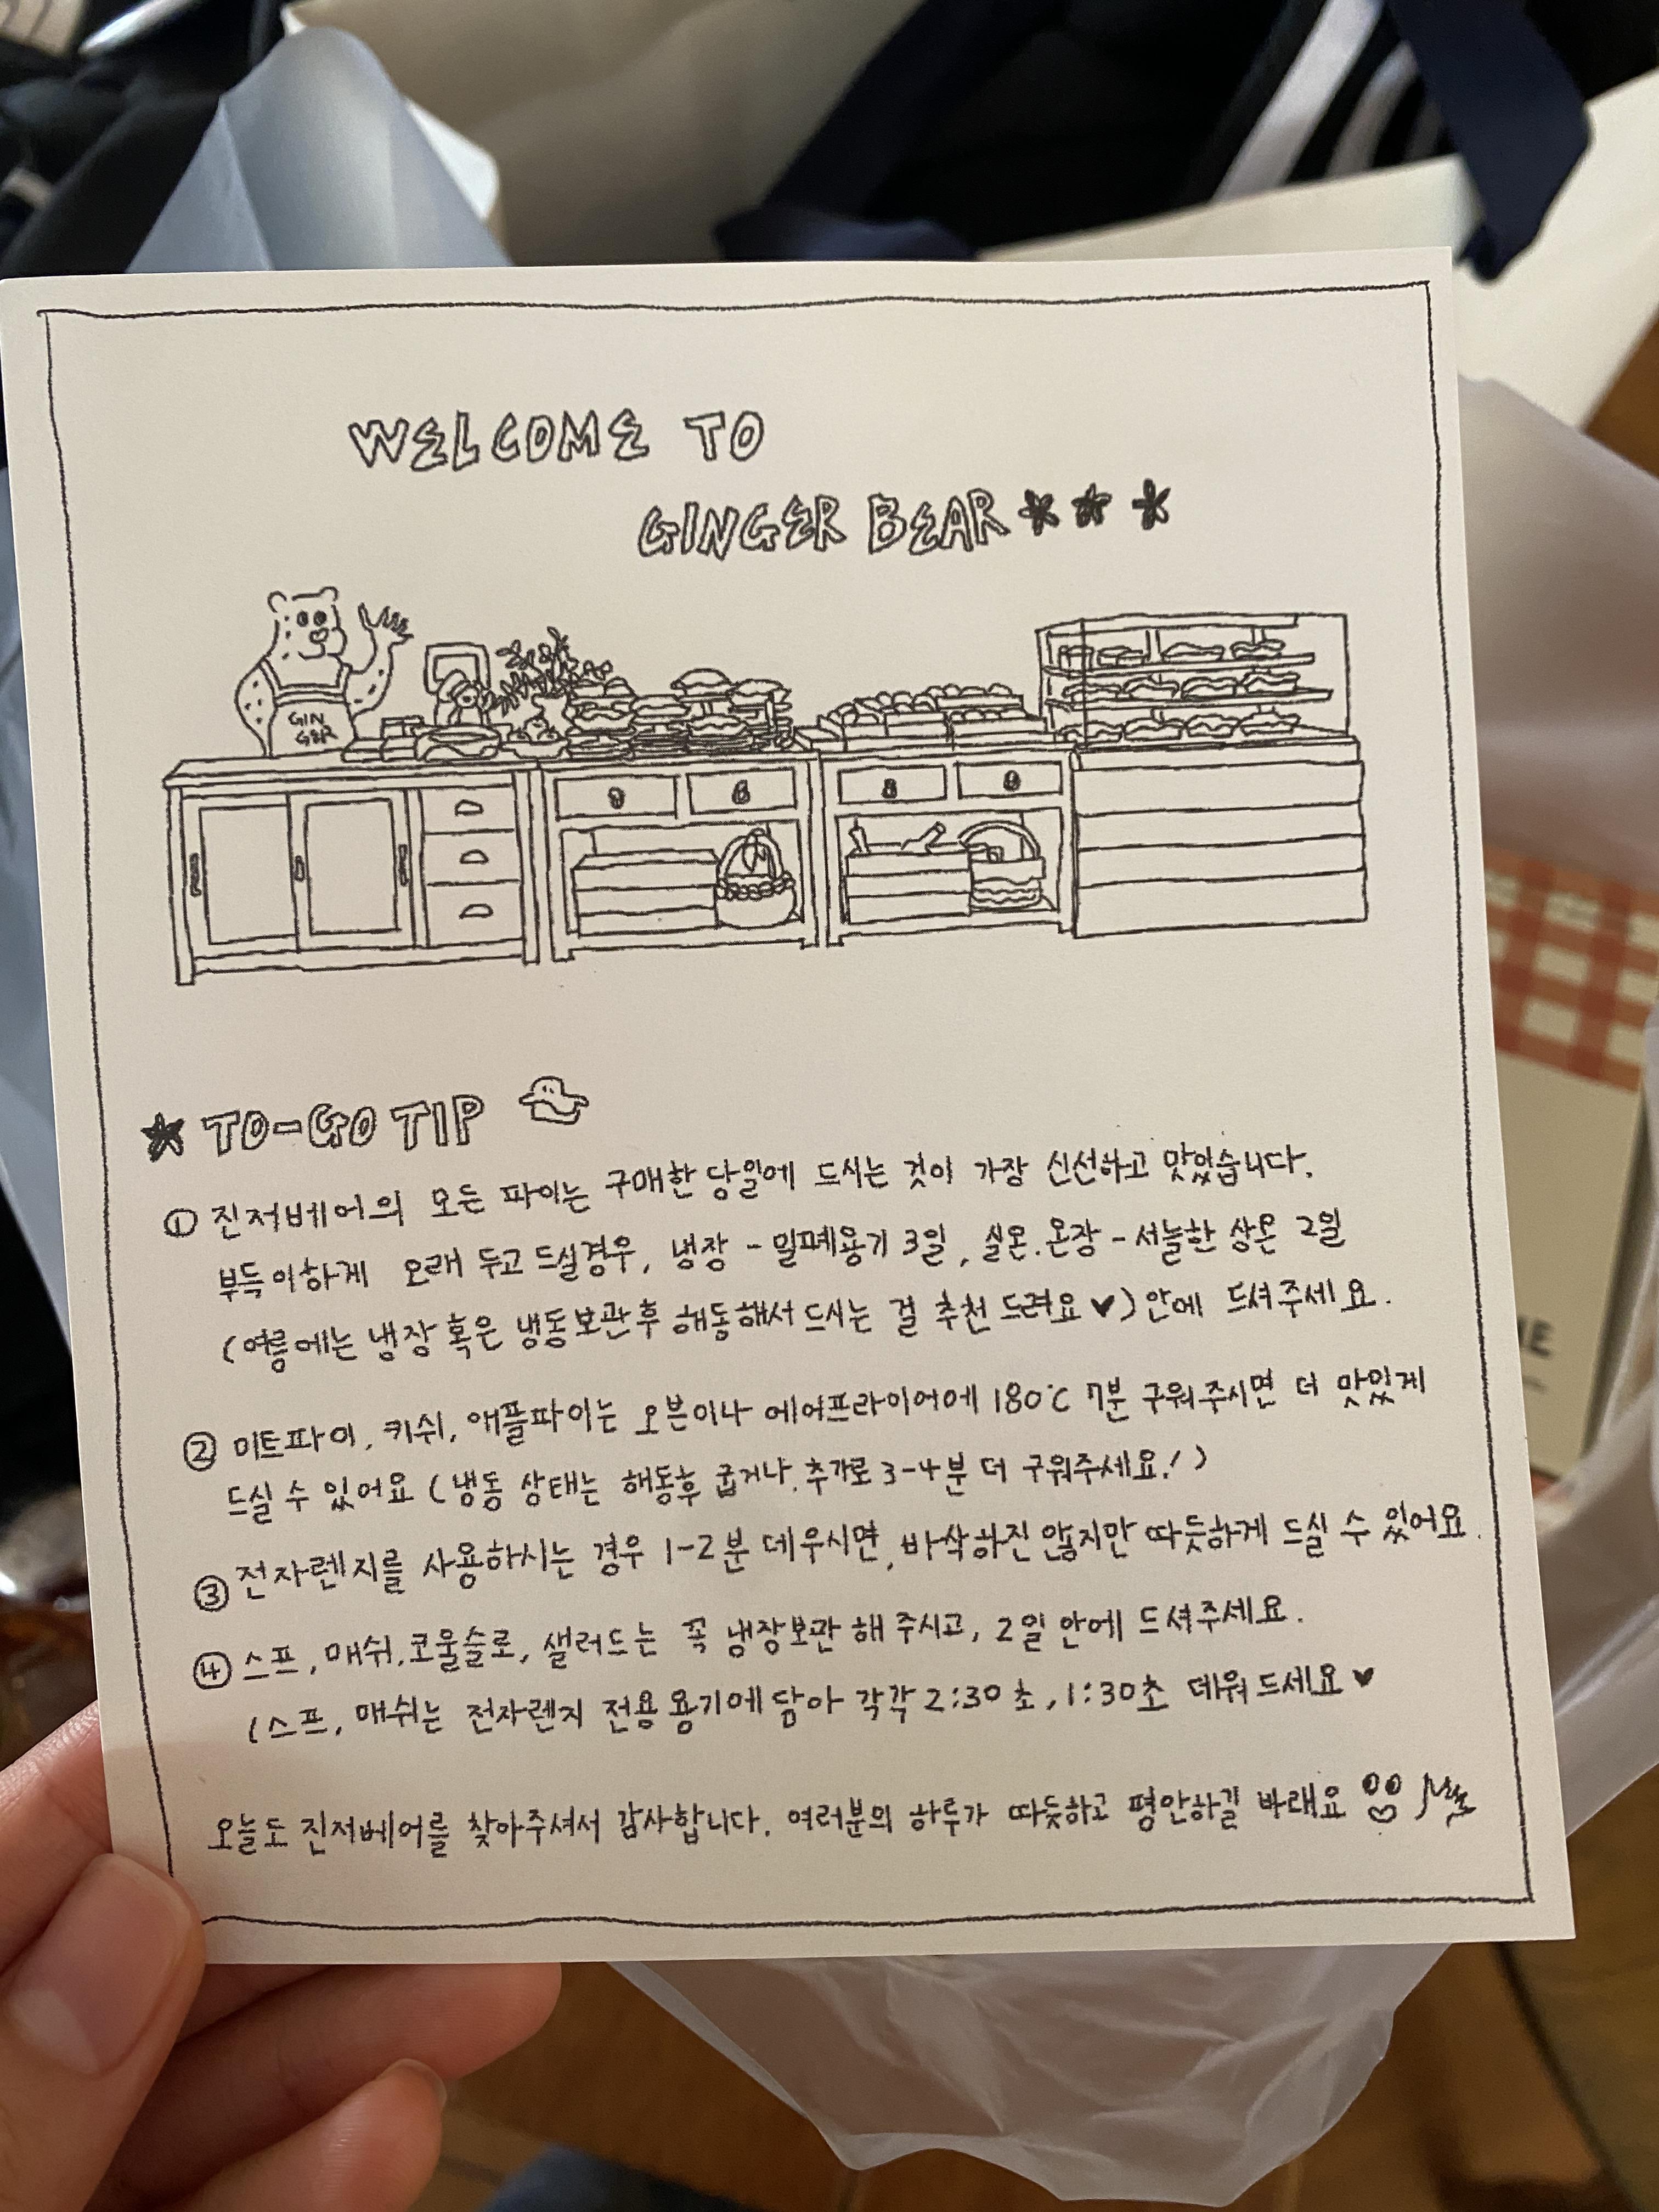 WELCOME TO
GINGER BEAR
GIN
GER
TO-GO TIP
① 진저베어의 모든 파이는 구매한 당일에 드시는 것이 가장 신선하고 맛있습니다.
부득이하게 오래 두고 드실경우, 냉장 - 밀폐용기 3일, 실온.온장 - 서늘한 상온 2일
(여름에는 냉장 혹은 냉동보관후 해동해서 드시는 걸 추천 드려요♥) 안에 드셔주세요.
② 미트파이, 키쉬, 애플파이는 오븐이나 에어프라이어에 180℃ 7분 구워주시면 더 맛있게
드실 수 있어요 (냉동 상태는 해동후 굽거나, 추가로 3-4분 더 구워주세요!)
③ 전자렌지를 사용하시는 경우 1-2분 데우시면, 바삭하진 않지만 따듯하게 드실 수 있어요.
④ 스프, 매쉬, 코울슬로, 샐러드는 꼭 냉장보관 해 주시고, 2일 안에 드셔주세요.
(스프, 매쉬는 전자렌지 전용 용기에 담아 각각 2:30초, 1:30초 데워드세요♥
오늘도 진저베어를 찾아주셔서 감사합니다. 여러분의 하루가 따듯하고 평안하길 바래요